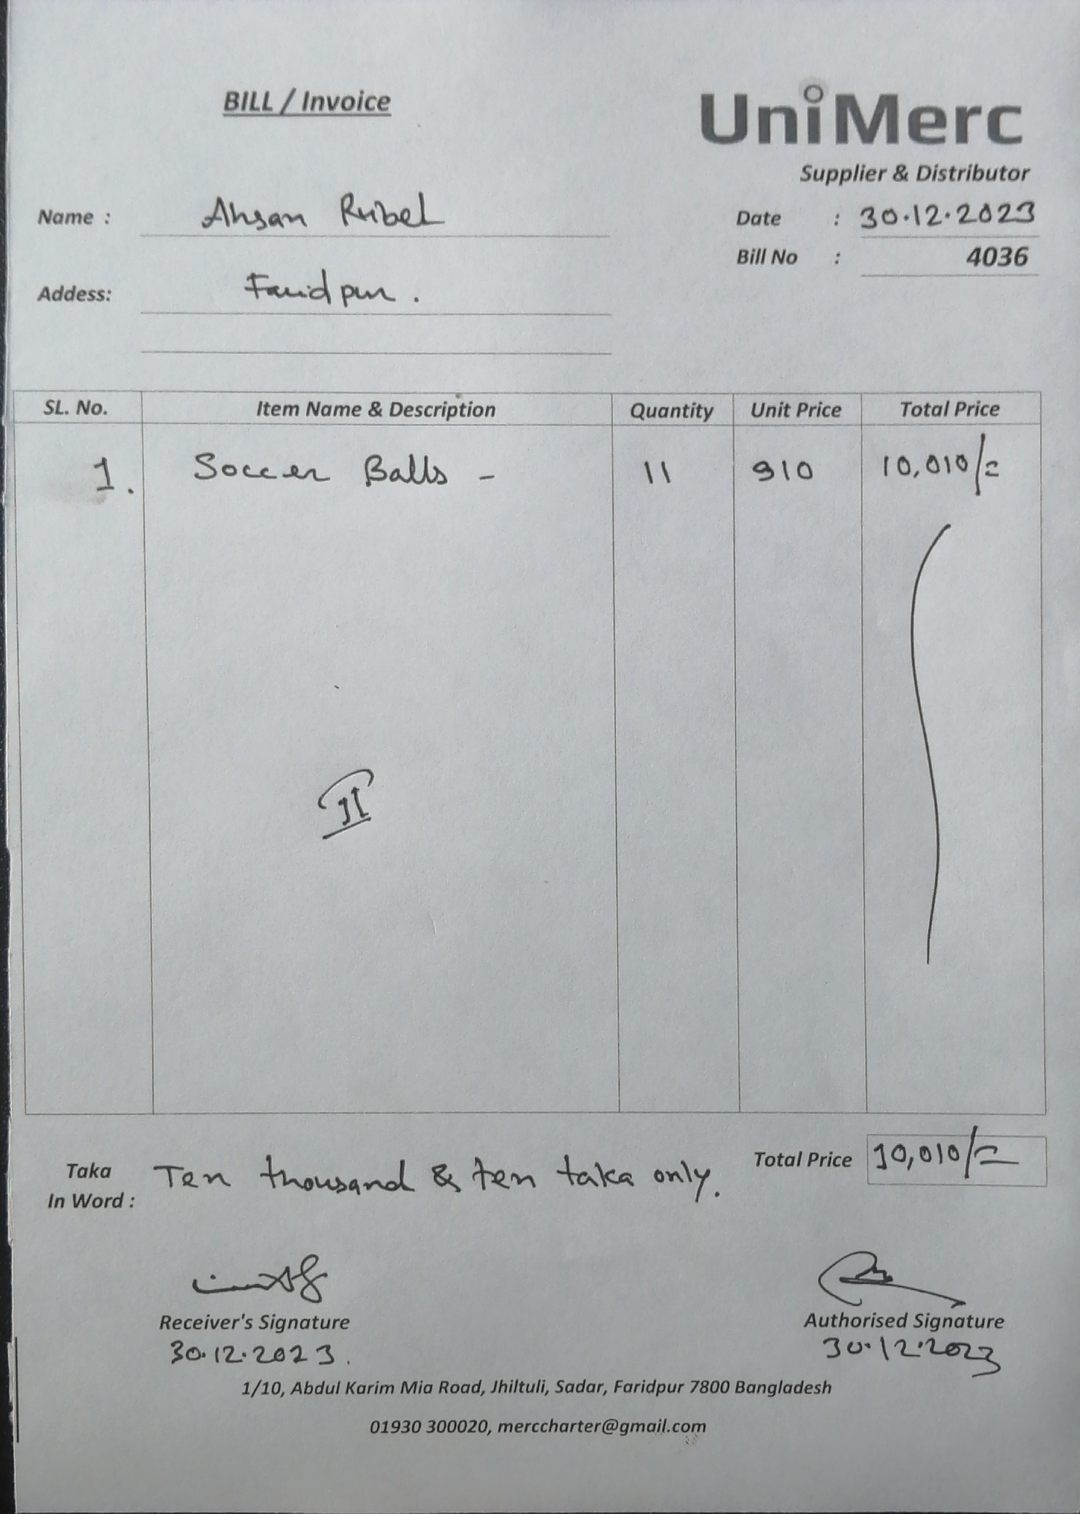 BILL / Invoice
UniMerc
Supplier & Distributor
Name : Ahsan Rubel
Date : 30.12.2023
Bill No : 4036
Addess: Faridpur.
SL. No. Item Name & Description Quantity Unit Price Total Price
1. Soccer Balls - 11 910 10,010/=
Taka In Word : Ten thousand & ten taka only.
Total Price 10,010/=
Receiver's Signature
30.12.2023.
Authorised Signature
30.12.2023
1/10, Abdul Karim Mia Road, Jhiltuli, Sadar, Faridpur 7800 Bangladesh
01930 300020, merccharter@gmail.com